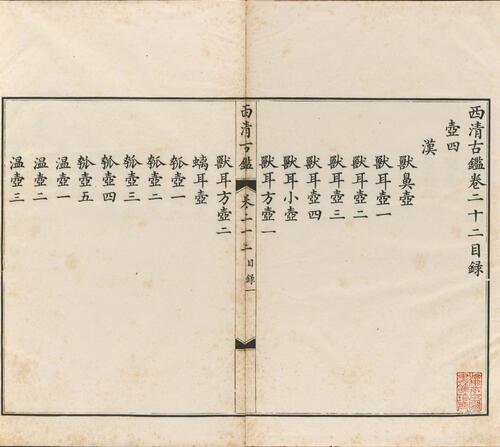 西清古鑑卷二十二目録
壺四
漢
獸鼻壺
獸耳壺一
獸耳壺二
獸耳壺三
獸耳壺四
獸耳小壺
獸耳方壺一
西清古鑑
卷二十二
目録一
獸耳方壺二
螭耳壺
瓠壺一
瓠壺二
瓠壺三
瓠壺四
瓠壺五
溫壺一
溫壺二
溫壺三